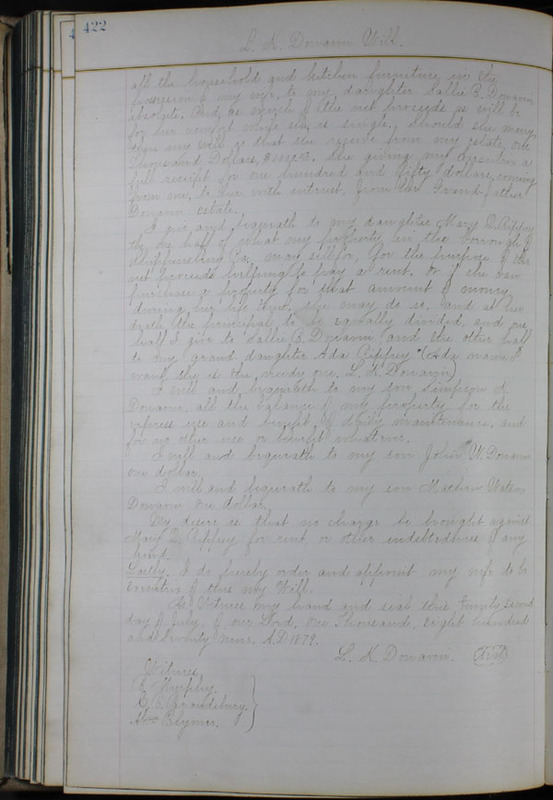 422
L. K. Donavin Will.
all the household and kitchen furniture in the
possession of my wife, to my daughter Sallie B. Donavin
absolute. And, as much of the net proceeds as will be
for her comfort while she is single. Should she marry,
then my will is that she receive from my estate, one
Thousand Dollars, she giving my Executrix a
full receipt for one hundred and fifty dollars, coming
from me, to her with interest, from her Grand father
Donavin estate.
I give and bequeath to my daughter Mary D. Rippey
the half of what my property in the borrough of
Shippensburg Pa. may sell for, for the purpose of the
net proceeds helping to pay a rent. Or if she can
purchase a property for that amount of money,
during her life time, she may do so, and at her
death the principal to be equally divided, and one
half I give to Sallie B. Donavin and the other half
to my grand daughter Ada Rippey (Ada
she is the needy one, L. K. Donavin)
I will and bequeath to my son Simpson K.
Donavin, all the balance of my property for the
express use and benefit of family maintenance, and
for no other use or benefit whatever.
I will and bequeath to my son John W. Donavin
one dollar.
I will and bequeath to my son Mathew Watson
Donavin one dollar.
My desire is that no charge be brought against
Mary D. Rippey for rent, or other indebtedness of any
kind.
Lastly. I do hereby order and appoint my wife to be
Executrix of this my Will.
As Witness my hand and seal this twenty second
day of July, of our Lord, one Thousand, eight hundred
and Seventy nine. A.D. 1879.
L. K. Donavin. (Seal)
Witness
Murphy.
Blymer.